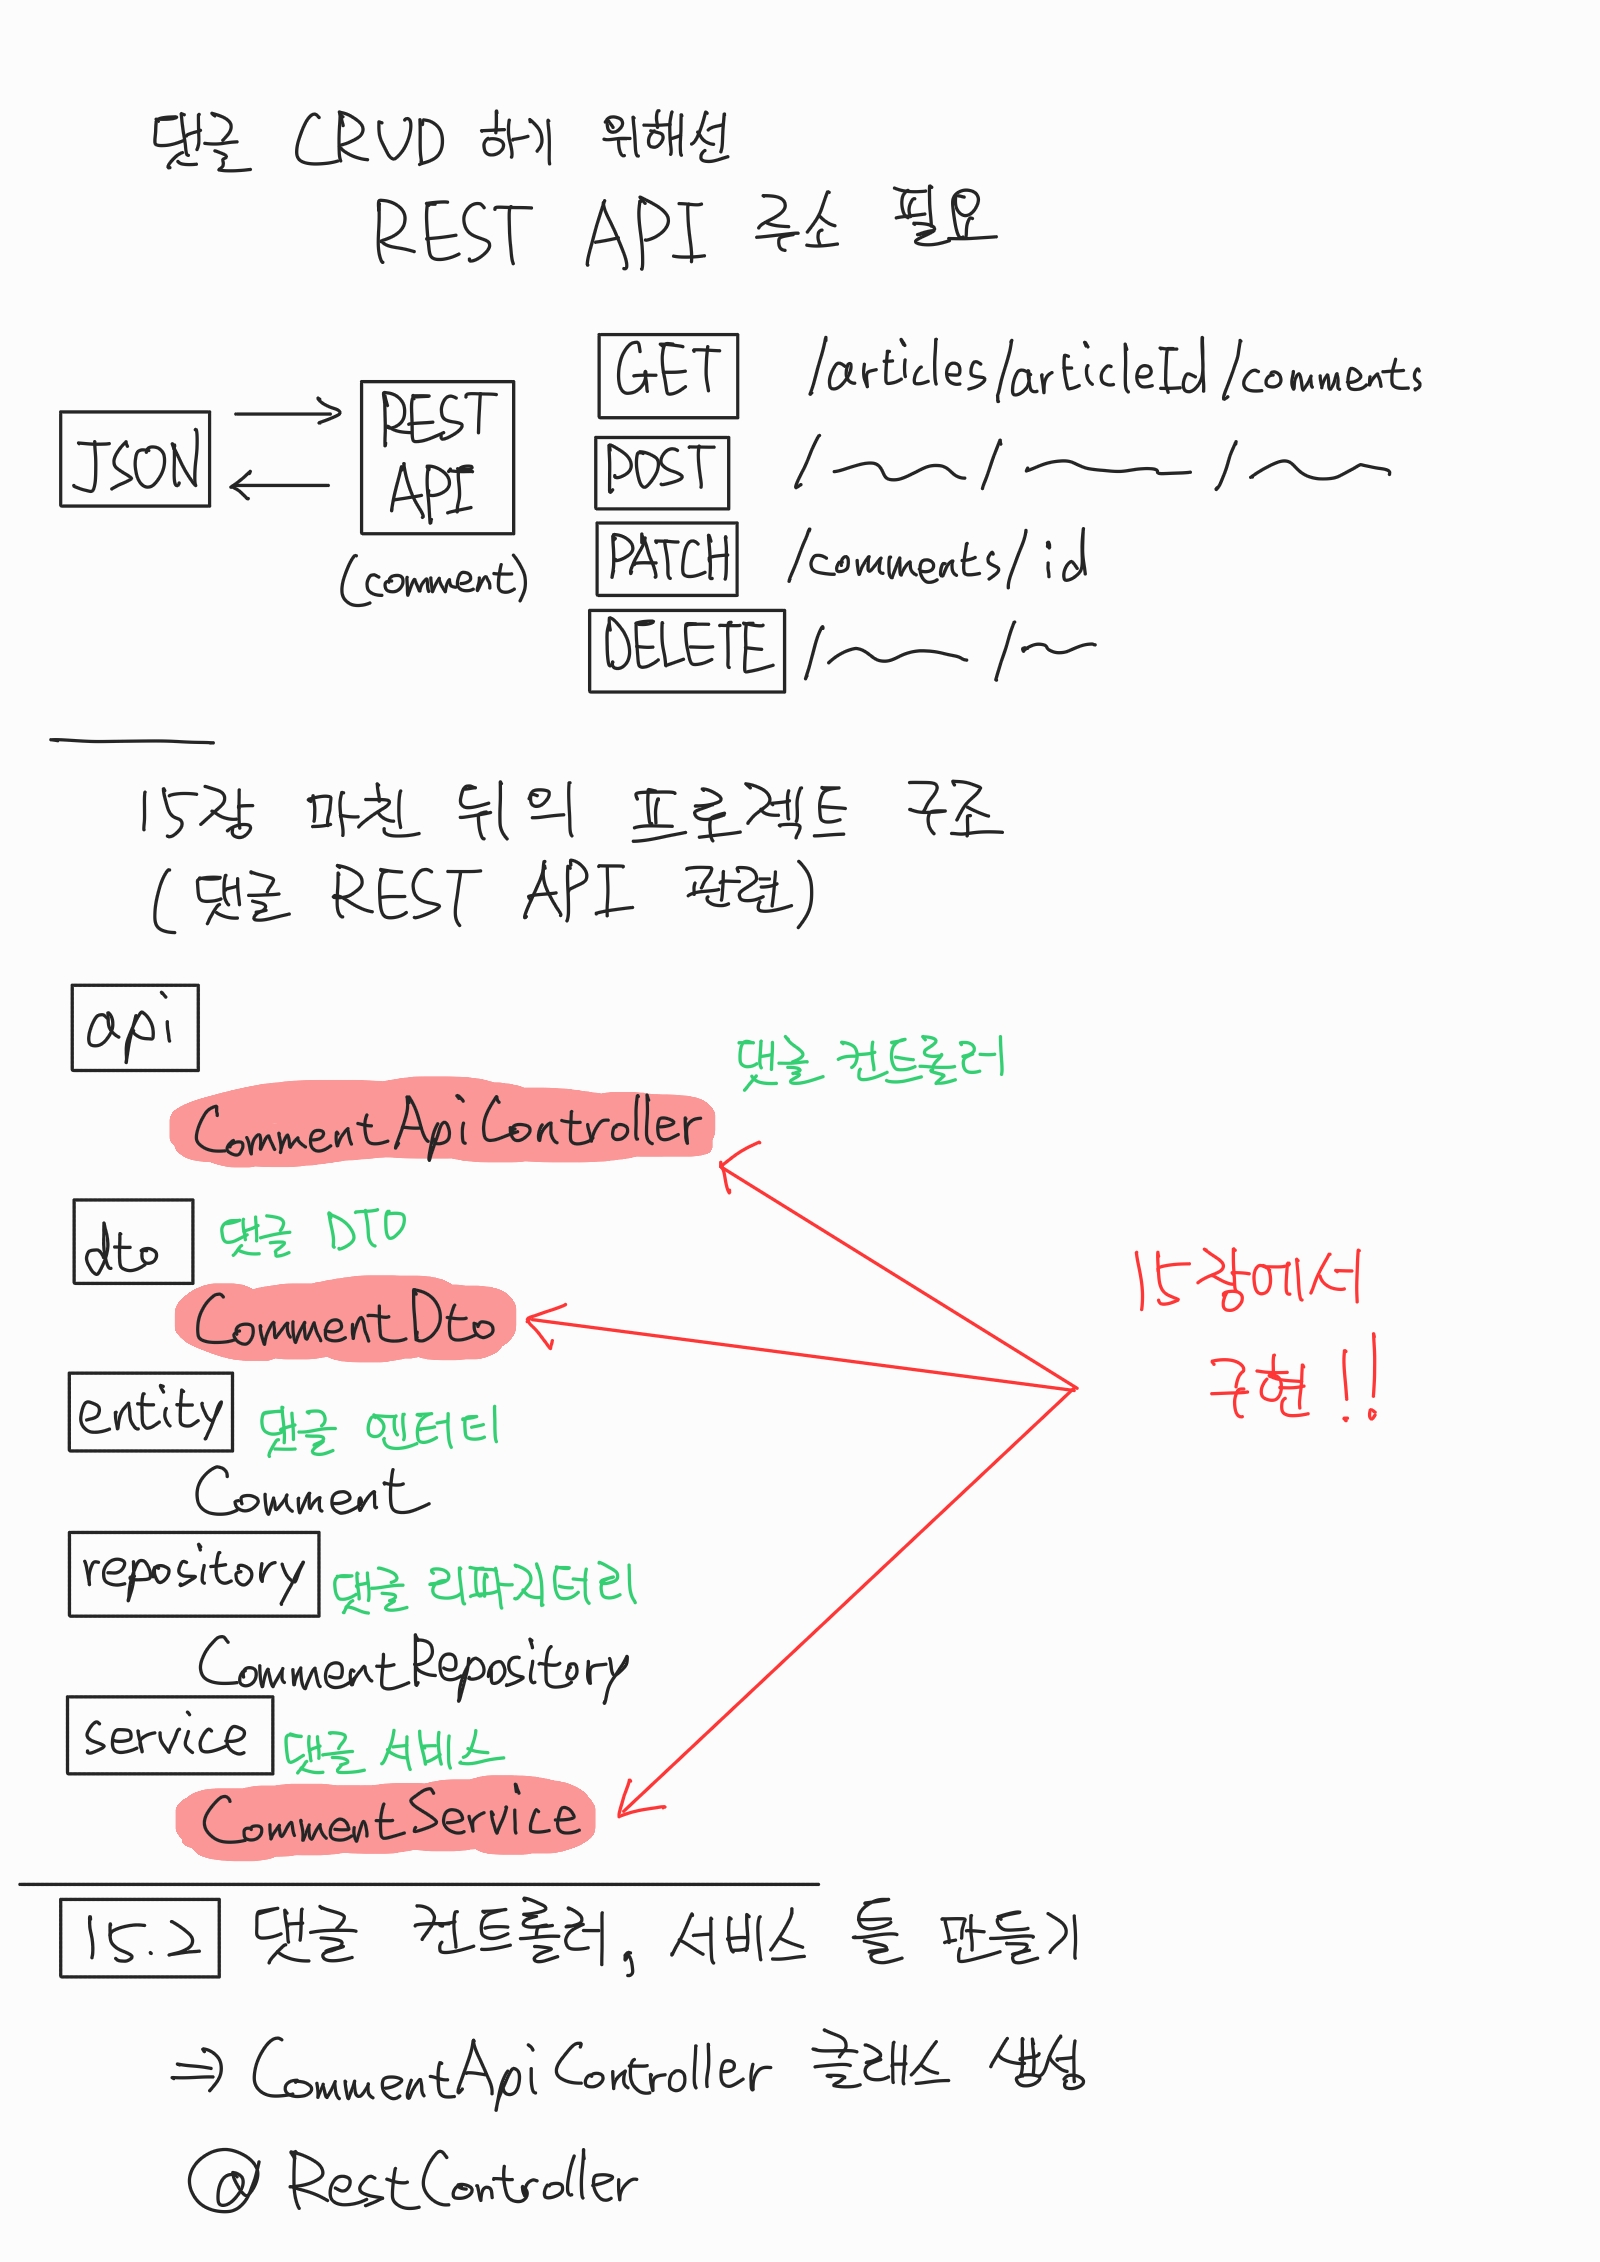 댓글 CRUD 하기 위해선
REST API 주소 필요
JSON
REST
API
(comment)
GET /articles/articleId/comments
POST / / /
PATCH /comments/id
DELETE / /
15장 마친 뒤의 프로젝트 구조
(댓글 REST API 관련)
api
댓글 컨트롤러
CommentApiController
dto 댓글 DTO
CommentDto
entity 댓글 엔터티
Comment
repository 댓글 리파지터리
CommentRepository
service 댓글 서비스
CommentService
15장에서
구현!!
15.2 댓글 컨트롤러, 서비스 틀 만들기
⇒ CommentApiController 클래스 생성
@RestController